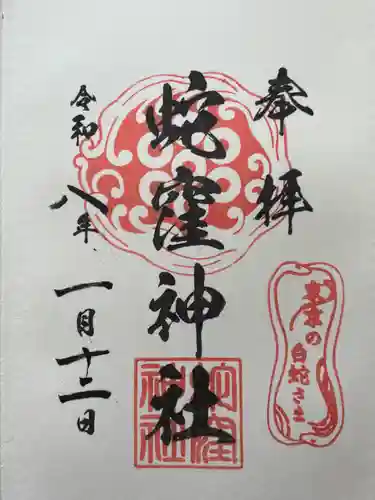 奉拝
東京の白蛇さま
蛇窪神社
蛇窪神社
令和八年
一月十二日